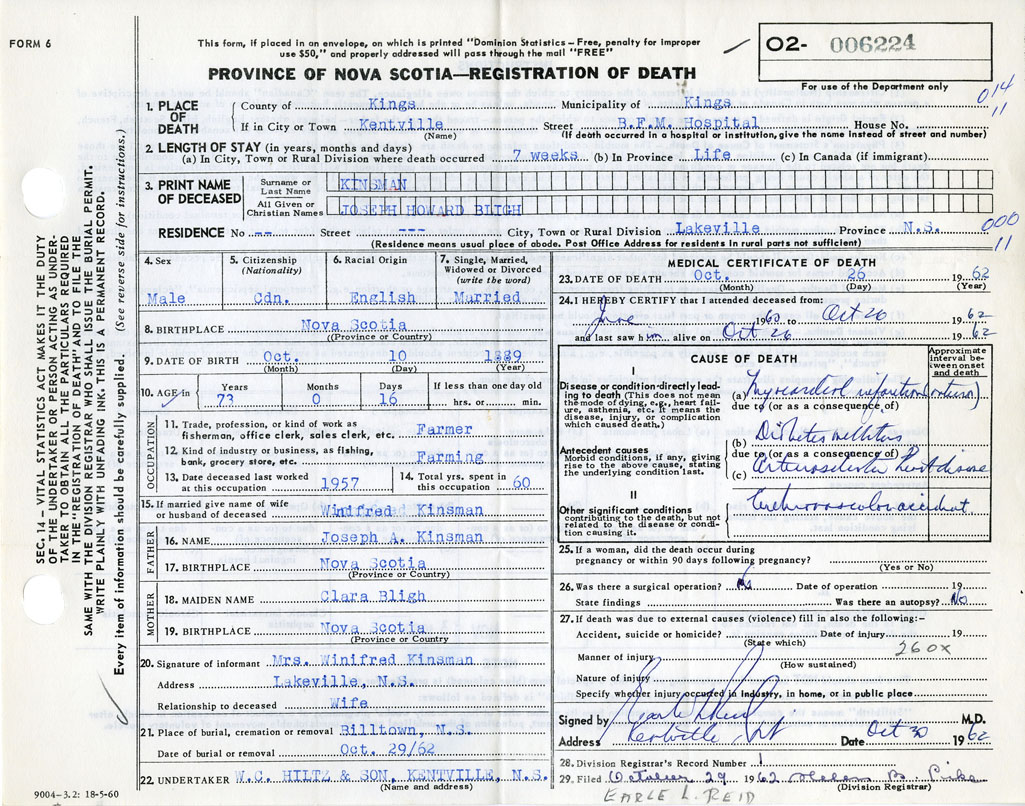 FORM 6
This form, if placed in an envelope, on which is printed "Dominion Statistics – Free, penalty for improper
use $50," and properly addressed will pass through the mail "FREE"
O2- 006224
For use of the Department only
PROVINCE OF NOVA SCOTIA—REGISTRATION OF DEATH
014
11
1. PLACE OF DEATH
County of Kings Municipality of Kings
If in City or Town Kentville Street B.F.M. Hospital House No.
(Name) (If death occurred in a hospital or institution, give the name instead of street and number)
2. LENGTH OF STAY (in years, months and days)
(a) In City, Town or Rural Division where death occurred 7 weeks (b) In Province Life (c) In Canada (if immigrant)
3. PRINT NAME OF DECEASED
Surname or Last Name KINSMAN
All Given or Christian Names JOSEPH HOWARD BLIGH
RESIDENCE No -- Street --- City, Town or Rural Division Lakeville Province N.S.
(Residence means usual place of abode. Post Office Address for residents in rural parts not sufficient)
000
11
4. Sex Male
5. Citizenship (Nationality) Cdn.
6. Racial Origin English
7. Single, Married, Widowed or Divorced (write the word) Married
8. BIRTHPLACE Nova Scotia
(Province or Country)
9. DATE OF BIRTH Oct. 10 1889
(Month) (Day) (Year)
10. AGE in Years 73 Months 0 Days 16 If less than one day old hrs. or min.
OCCUPATION
11. Trade, profession, or kind of work as fisherman, office clerk, sales clerk, etc. Farmer
12. Kind of industry or business, as fishing, bank, grocery store, etc. Farming
13. Date deceased last worked at this occupation 1957
14. Total yrs. spent in this occupation 60
15. If married give name of wife or husband of deceased Winifred Kinsman
FATHER
16. NAME Joseph A. Kinsman
17. BIRTHPLACE Nova Scotia
(Province or Country)
MOTHER
18. MAIDEN NAME Clara Bligh
19. BIRTHPLACE Nova Scotia
(Province or Country
20. Signature of informant Mrs. Winifred Kinsman
Address Lakeville, N.S.
Relationship to deceased Wife
21. Place of burial, cremation or removal Billtown, N.S.
Date of burial or removal Oct. 29/62
22. UNDERTAKER W.C. HILTZ & SON, KENTVILLE, N.S.
(Name and address)
MEDICAL CERTIFICATE OF DEATH
23. DATE OF DEATH Oct. 26 1962
(Month) (Day) (Year)
24. I HEREBY CERTIFY that I attended deceased from:
June 1960 to Oct 26 1962
and last saw him alive on Oct 26 1962
CAUSE OF DEATH
Approximate interval between onset and death
I
Disease or condition directly leading to death (This does not mean the mode of dying, e.g., heart failure, asthenia, etc. It means the disease, injury, or complication which caused death.)
(a) Myocardial infarction
due to (or as a consequence of)
(b) Diabetes mellitus
Antecedent causes
Morbid conditions, if any, giving rise to the above cause, stating the underlying condition last.
due to (or as a consequence of)
(c) Arteriosclerotic Heart disease
II
Other significant conditions contributing to the death, but not related to the disease or condition causing it.
Cerebrovascular accident
25. If a woman, did the death occur during pregnancy or within 90 days following pregnancy?
(Yes or No)
26. Was there a surgical operation? No Date of operation 19
State findings Was there an autopsy? No
27. If death was due to external causes (violence) fill in also the following:–
Accident, suicide or homicide? Date of injury 19
(State which)
260X
Manner of injury
(How sustained)
Nature of injury
Specify whether injury occurred in industry, in home, or in public place
Signed by M.D.
Address Kentville, NS Date Oct 30 1962
28. Division Registrar's Record Number 1
29. Filed October 29 1962
(Division Registrar)
EARLE L. REID
9004-3.2: 18-5-60
SEC. 14 – VITAL STATISTICS ACT MAKES IT THE DUTY
OF THE UNDERTAKER OR PERSON ACTING AS UNDER-
TAKER TO OBTAIN ALL THE PARTICULARS REQUIRED
IN THE "REGISTRATION OF DEATH" AND TO FILE THE
SAME WITH THE DIVISION REGISTRAR WHO SHALL ISSUE THE BURIAL PERMIT.
WRITE PLAINLY WITH UNFADING INK. THIS IS A PERMANENT RECORD.
Every item of information should be carefully supplied. (See reverse side for instructions.)